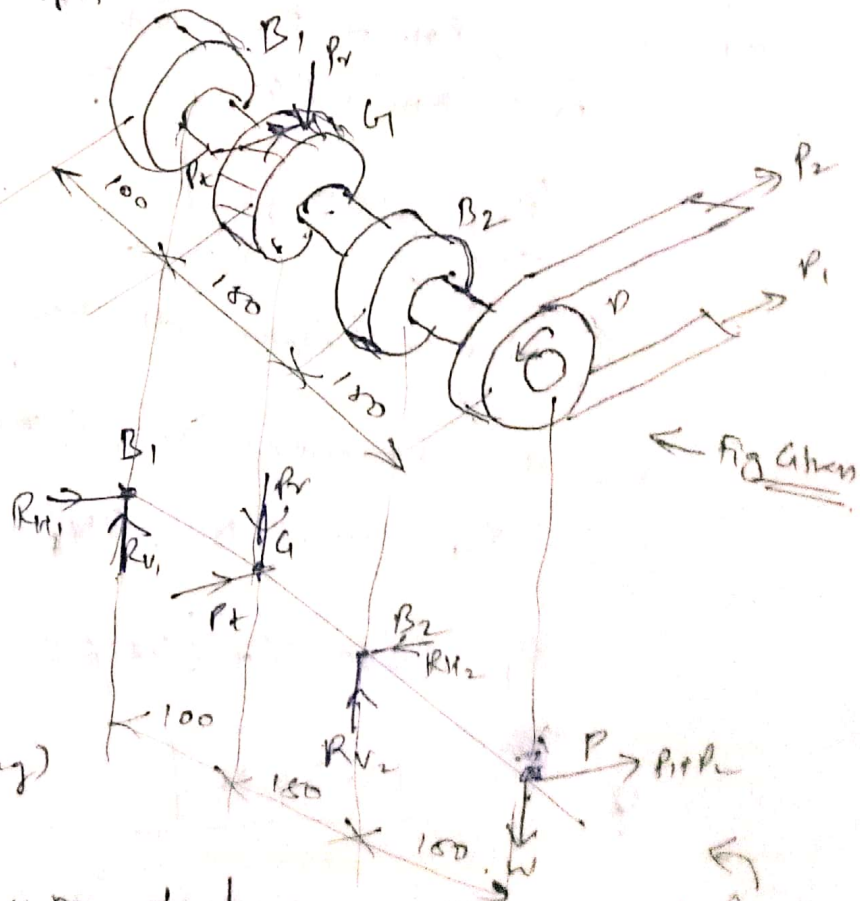 B1
Pr
G
Pt
100
B2
P2
P1
P
150
100
← Fig Given
B1
RH1
RV1
Pr
G
Pt
B2
RH2
RV2
100
150
100
P
P1+P2
W